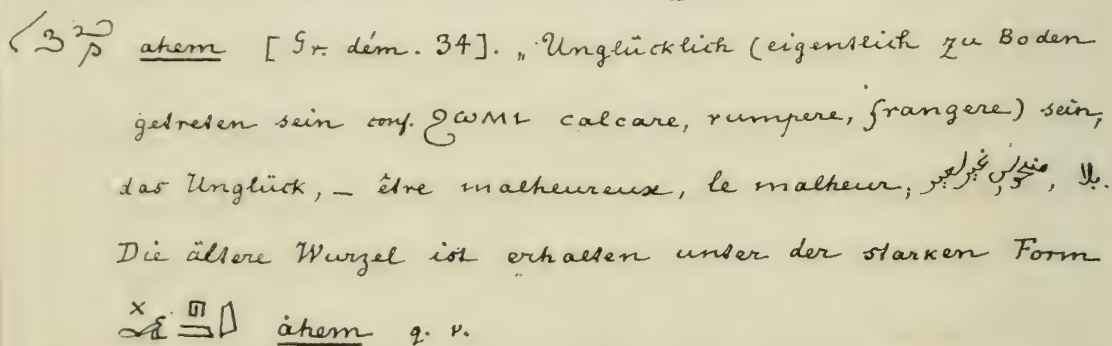 ahem [Gr. dém. 34]. „Unglücklich (eigentlich zu Boden
getreten sein conf. ϩⲱⲙⲓ calcare, rumpere, frangere) sein,
das Unglück, – être malheureux, le malheur, بلا.
Die ältere Wurzel ist erhalten unter der starken Form
åhem q. v.